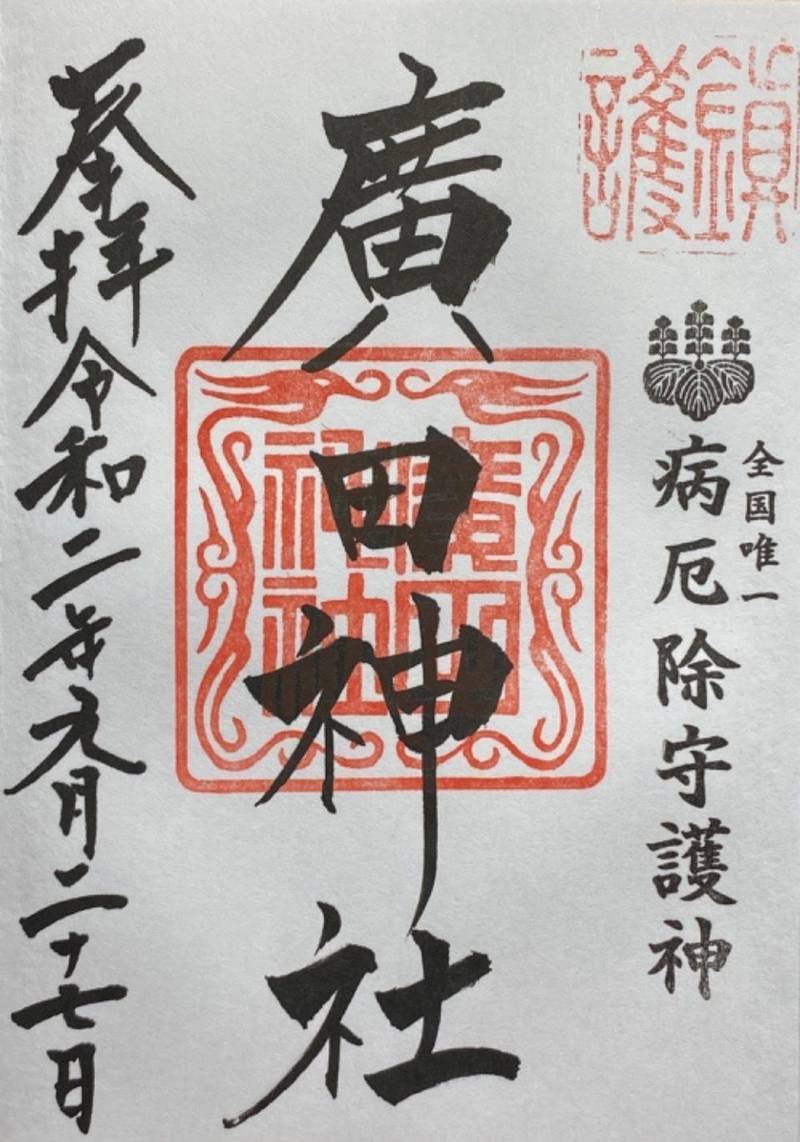 鎮護
全国唯一
病厄除守護神
廣田神社
廣田神社
奉拝令和二年九月二十七日